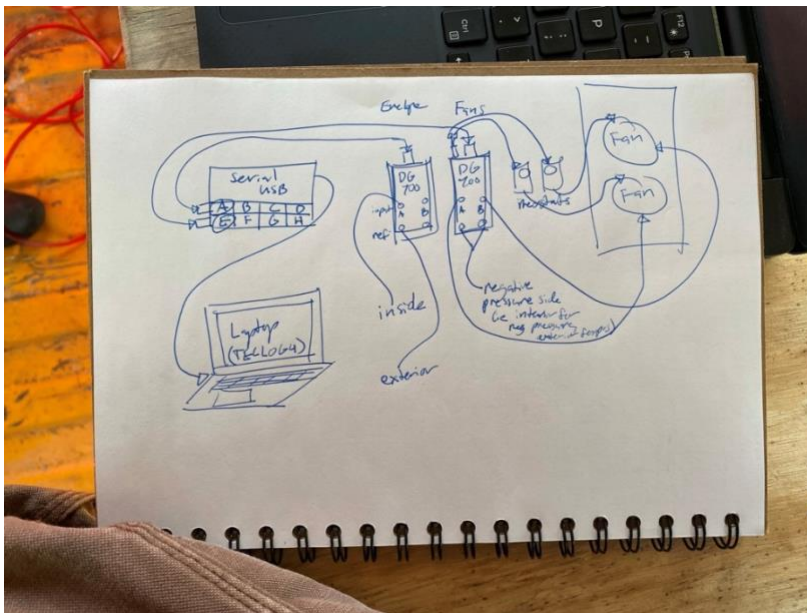 Fans
Serial
USB
A B C D
E F G H
DG
700
A B
input
ref
DG
700
A B
Fan
Fan
inside
exterior
negative
pressure side
(ie interior for
neg pressure,
exterior for pos)
Laptop
(TECLOG4)
Ctrl
P
F12